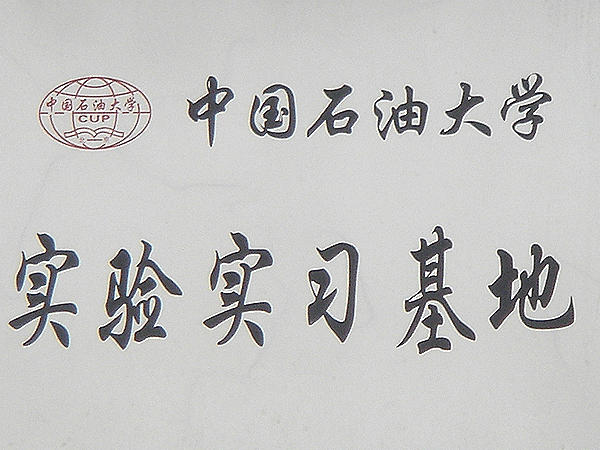 中国石油大学
CUP
中国石油大学
实验实习基地